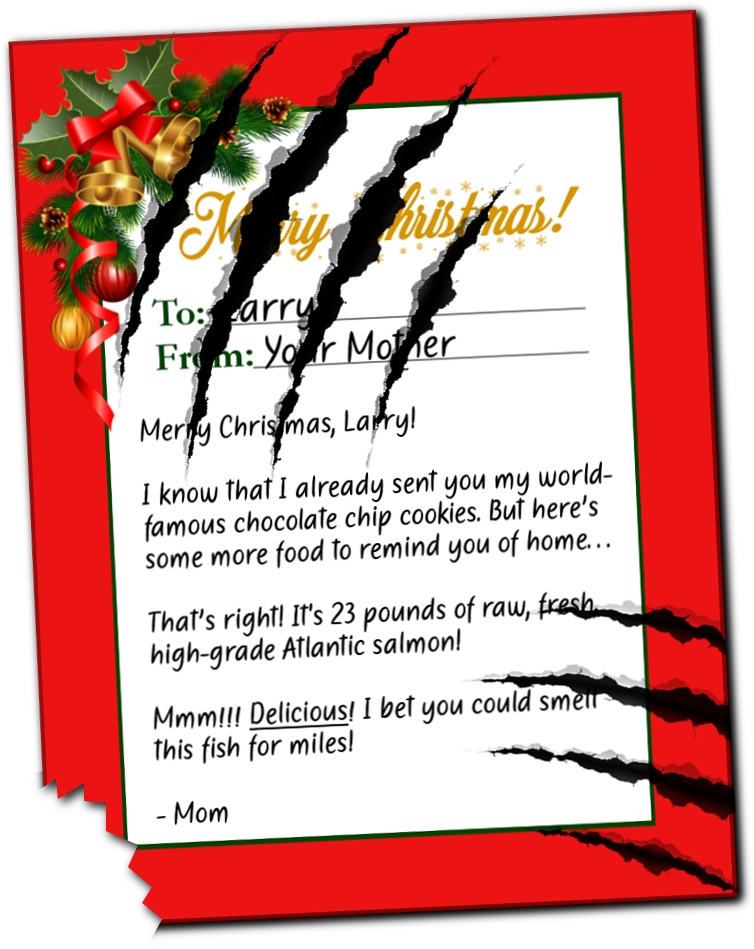 Merry Christmas!
To: Larry
From: Your Mother
Merry Christmas, Larry!
I know that I already sent you my world-
famous chocolate chip cookies. But here's
some more food to remind you of home...
That's right! It's 23 pounds of raw, fresh,
high-grade Atlantic salmon!
Mmm!!! Delicious! I bet you could smell
this fish for miles!
- Mom